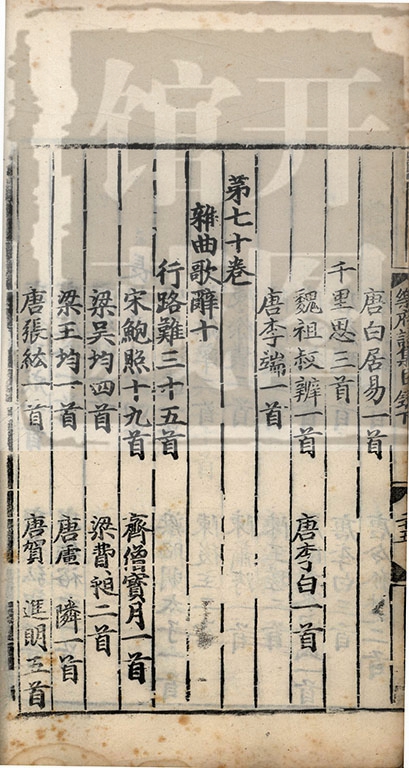 唐白居易一首
千里思三首
魏祖叔辨一首 唐李白一首
唐李端一首
第七十卷
雜曲歌辭十
行路難三十五首
宋鮑照十九首 齊僧寶月一首
梁吳均四首 梁費昶二首
梁王均一首 唐盧 隣一首
唐張紘一首 唐賀 進明五首